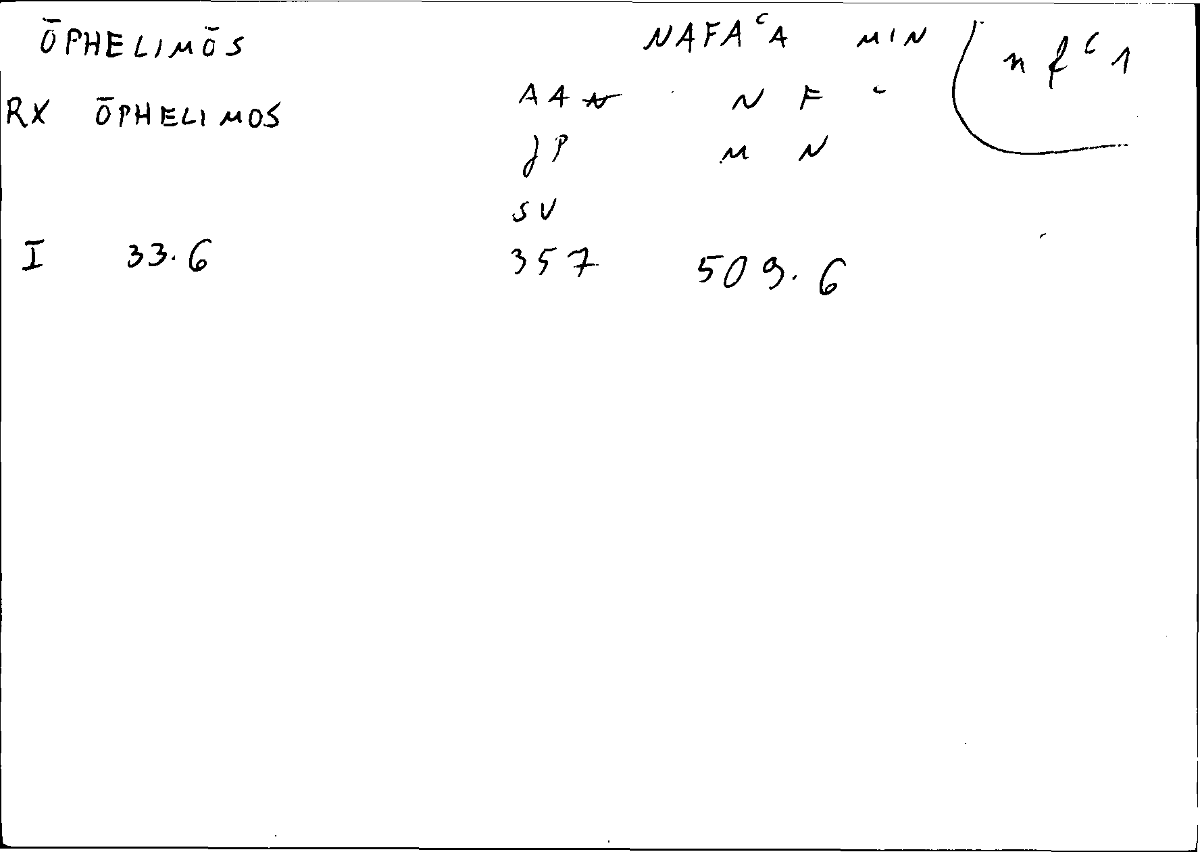 ŌPHELIMŌS NAFAᶜA MIN n fᶜ 1
RX ŌPHELIMOS AAN N F ᶜ
JP M N
SV
I 33.6 357 509.6